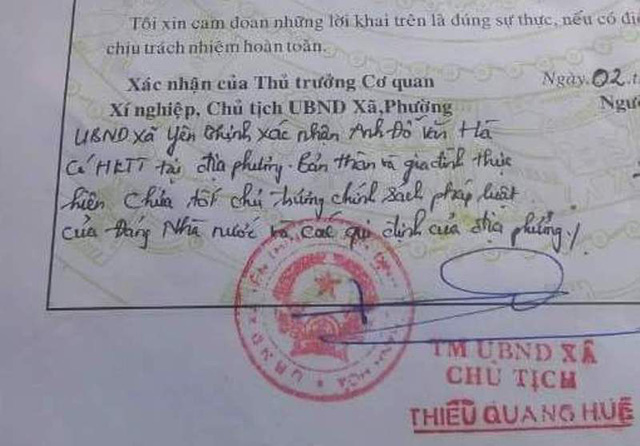 Tôi xin cam đoan những lời khai trên là đúng sự thực, nếu có
chịu trách nhiệm hoàn toàn.
Xác nhận của Thủ trưởng Cơ quan
Ngày.02.
Xí nghiệp, Chủ tịch UBND Xã,Phường
UBND xã Yên Thịnh xác nhận Anh Đỗ Văn Hà
Có HKTT tại địa phương. Bản thân và gia đình thực
hiện chưa tốt chủ trương chính sách pháp luật
của Đảng Nhà nước và các qui định của địa phương./
TM UBND XÃ
CHỦ TỊCH
THIỀU QUANG HUẾ